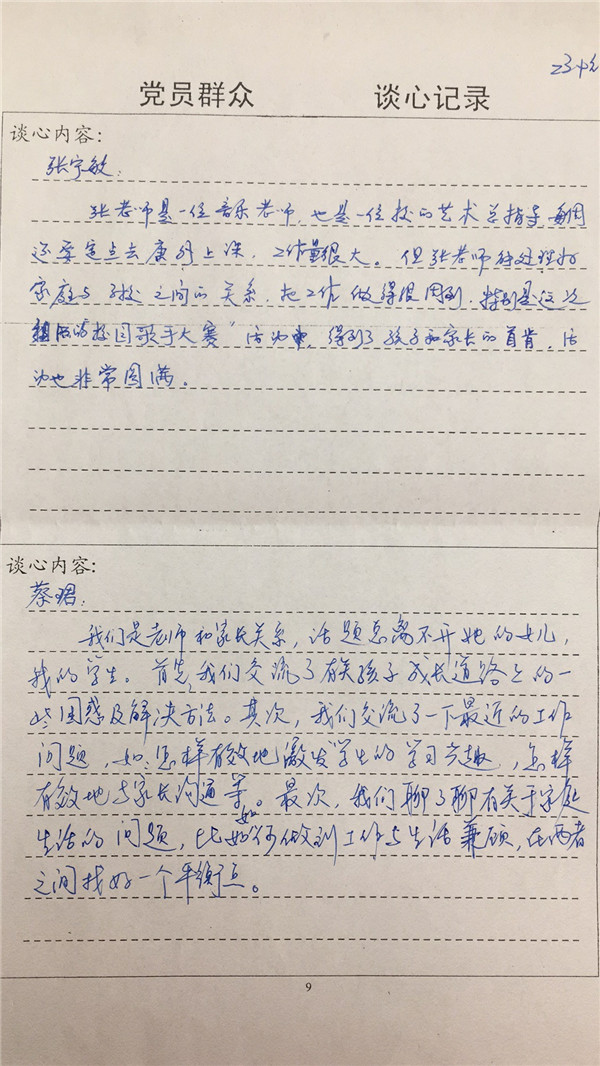 党员群众 谈心记录
谈心内容:
张宇敏:
张老师是一位音乐老师,也是一位校的艺术总指导每周
还要定点去康外上课,工作量很大。但张老师能处理好
家庭与学校之间的关系,把工作做得很周到,特别是这次
组织的校园歌手大赛"活动中,得到了孩子和家长的首肯,活
动也非常圆满。
谈心内容:
蔡珺:
我们是老师和家长关系,话题总离不开她的女儿,
我的学生。首先,我们交流了有关孩子成长道路上的一
些困惑及解决方法。其次,我们交流了一下最近的工作
问题,如:怎样有效地激发学生的学习兴趣,怎样
有效地与家长沟通等。最次,我们聊了聊有关于家庭
生活的问题,比如如何做到工作与生活兼顾,在两者
之间找好一个平衡点。
9